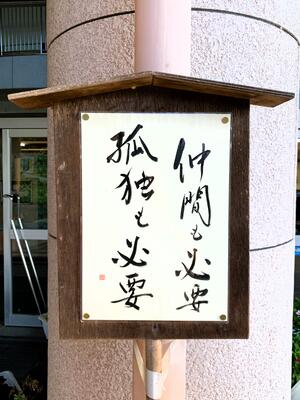 仲間も必要
孤独も必要